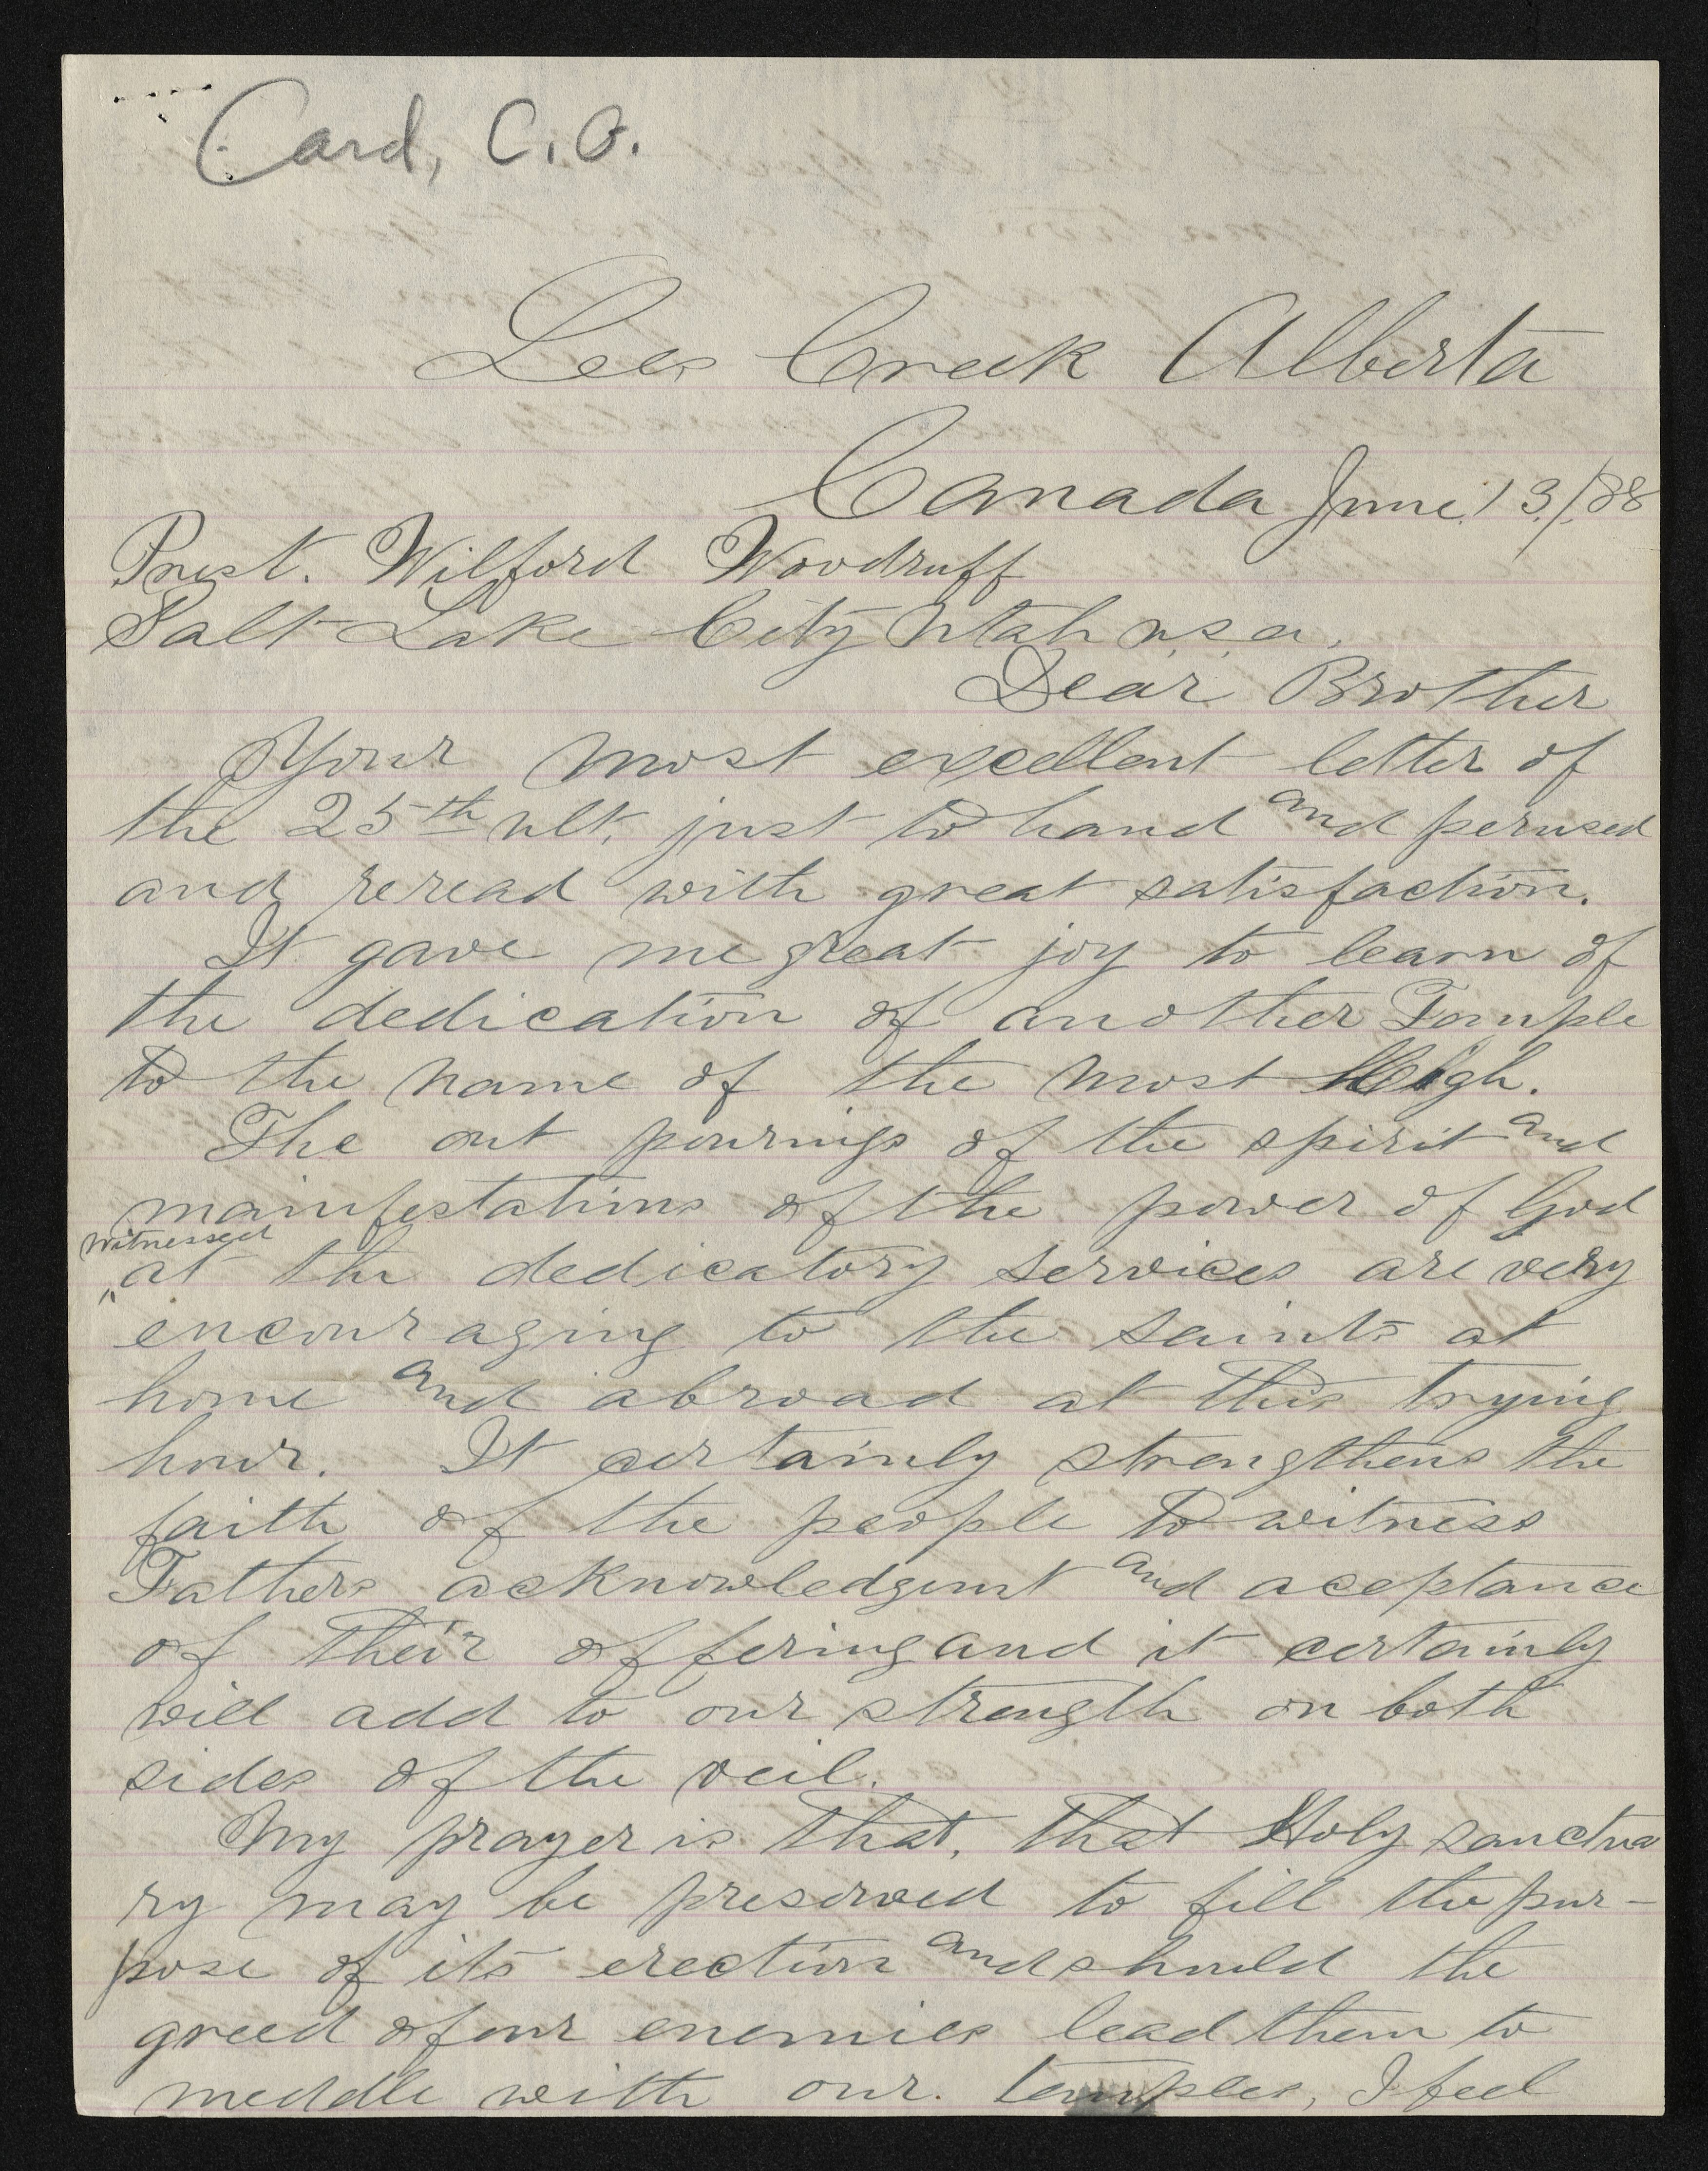 Card, C. O.
Lees Creek Alberta
Canada June 13/88
Prest. Wilford Woodruff
Salt Lake City Utah U.S.A.
Dear Brother
Your most excellent letter of
the 25th ult. just to hand and perused
and reread with great satisfaction.
It gave me great joy to learn of
the dedication of another Temple
to the name of the most High.
The out pourings of the spirit and
manifestations of the power of God
witnessed
at the dedicatory services are very
encouraging to the saints at
home and abroad at this trying
hour. It certainly strengthens the
faith of the people to witness
Fathers acknowledgment and aceptance
of their offering and it certainly
will add to our strength on both
sides of the veil.
My prayer is that, that Holy sanctua
ry may be preserved to fill the pur-
pose of its erection and should the
greed of our enemies lead them to
meddle with our temples, I feel